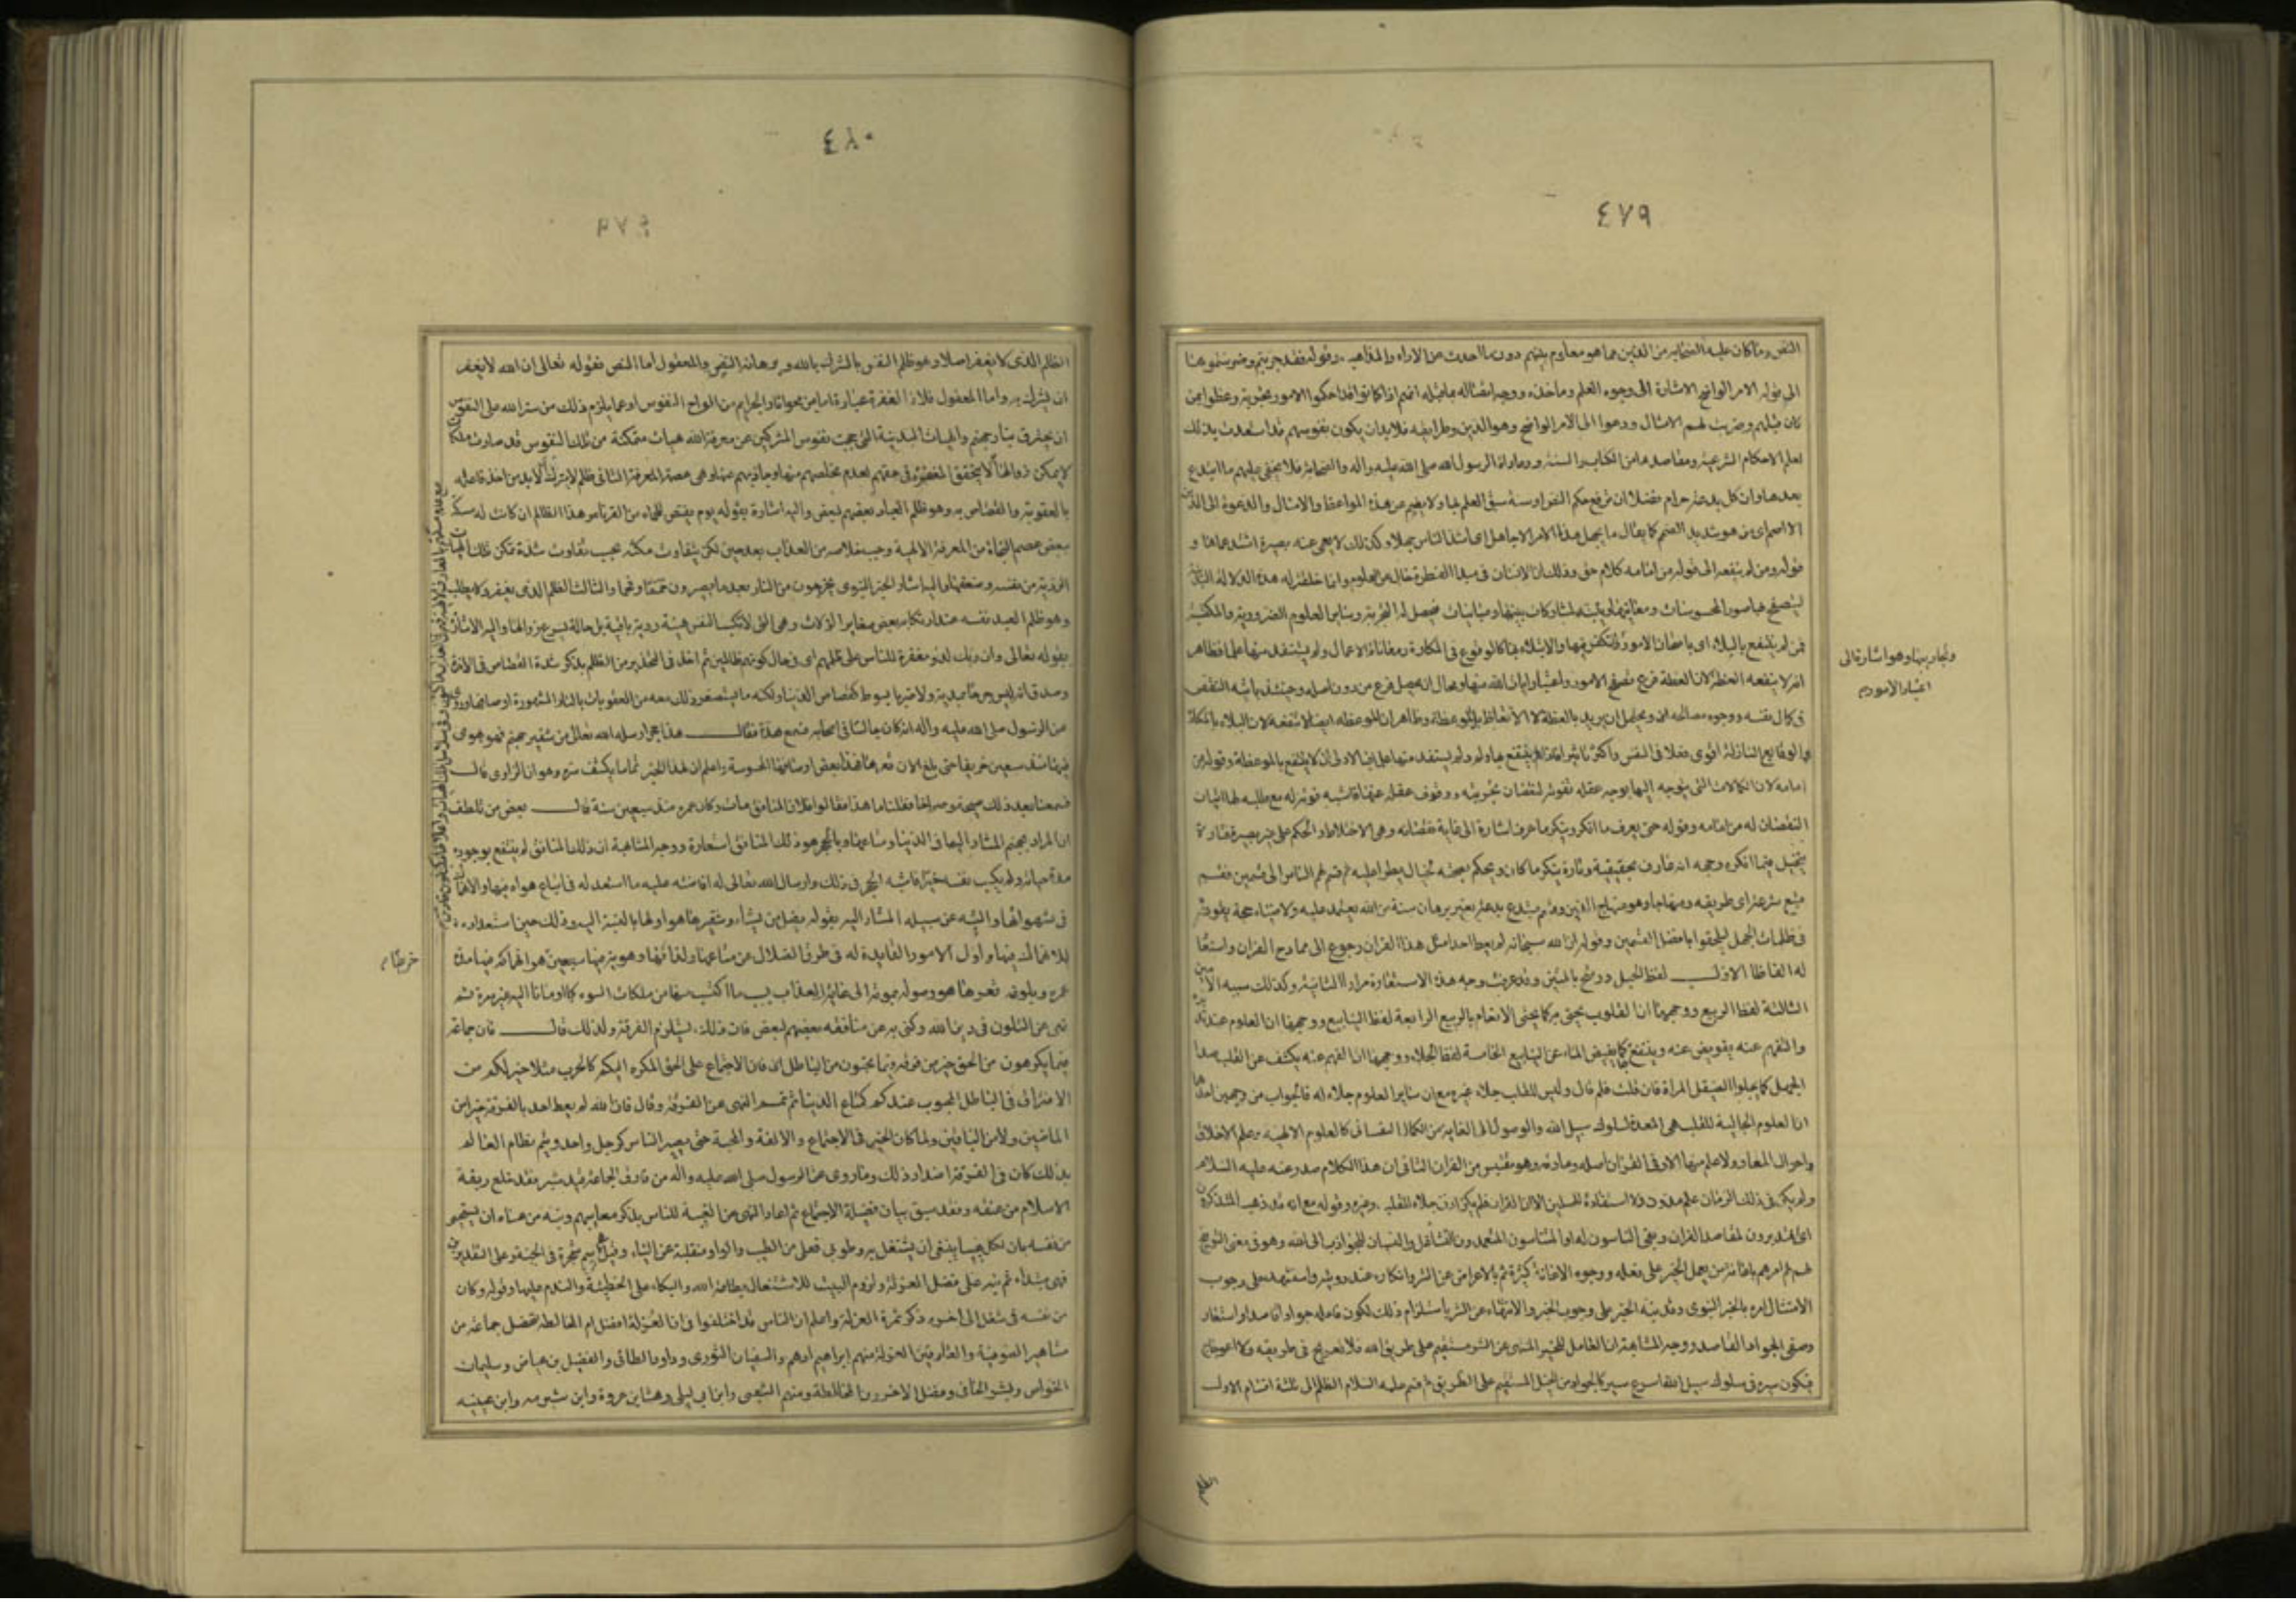 ٤٧٩
النص وما كان عليه الصحابة من الدين مما هو معلوم بينهم دون ما احدث من الاراء والمذاهب وقوله فقد جربتم وضرستموها
الى قوله الامر الواضح الاشارة الى وجوه العلم وماخذه ووجه اتصاله بما قبله انهم اذا كانوا قد احكموا الامور بتجربة ووعظوا بمن
كان قبلهم وضربت لهم الامثال ودعوا الى الامر الواضح وهو الدين وطرايقه فلا بد ان يكون نفوسهم قد استعدت بذلك
لعلم الاحكام الشرعية ومقاصدها من الكتاب والسنة وعادة الرسول صلى الله عليه واله والصحابة فلا يخفى عليهم ما ابتدع
بعدها وان كل بدعة حرام فضلا ان ترفع حكم النص او سنة سبق العلم بها ولا يصم عن هذه المواعظ والامثال والدعوة الى الدين
الا اصم اى من هو شديد الصمم كما يقال ما يجهل هذا الامر الا جاهل اى اشد الناس جهلا وكذلك لا يعمى عنه بصيرة اشد عماها و
قوله ومن لم ينفعه الى قوله من امامه كلام حق وذلك ان الانسان فى مبدا الفطرة خال من العلوم وانما خلقت له هذه الالة البدنية
ليتصفح بها صور المحسوسات ومعانيها ويتنبه لمشاركات بينها ومباينات فيحصل له التجربة وسائر العلوم الضرورية والمكتسبة
فمن لم ينتفع بالبلاء اى بامتحان الامور والتفكر فيها والابتلاء بها كالوقوع فى المكاره ومعاناة الاعمال ولم يستفد منها علما فظاهر
انه لا ينفعه العظة لان العظة فرع تصفح الامور واعتبار ايات الله منها ومحال ان يحصل فرع من دون اصله وحينئذ ياتيه النقص
فى كمال نفسه ووجوه مصالحه
والوقايع النازلة اقوى فعلا فى النفس واكثر تاثيرا فاذا لم ينتفع بها ولم يستفد منها علما فالاولى ان لا ينتفع بالموعظة وقوله من
امامه لان الكمالات التى يتوجه اليها بوجه عقله تفوته لنقصان تجربته ووقوف عقله عنها فاشبه فوتها له مع طلبه لها اتيان
النقصان له من امامه وقوله حتى يعرف ما انكر وينكر ما عرف اشارة الى غاية نقصانه وهى الاختلاط والحكم على غير بصيرة فتارة
يتخيل فيما انكره وجهله انه عارف بحقيقته وتارة ينكر ما كان يحكم بصحته لخيال يطرا عليه ثم قسم لهم الناس الى قسمين فقسم
متبع شرعة اى طريقه ومنهاجا وهو منهاج الدين وقسم مبتدع بدعة بغير برهان سنة من الله يعتمد عليه ولا ضياء حجة يقوده
فى ظلمات الجهل ليلحقوا بافضل القسمين وقوله ان الله سبحانه لم يعظ احدا بمثل هذا القران رجوع الى ممادح القران واستعار
له الفاظا الاول لفظ الحبل ورشح بالمتين وقد عرفت وجه هذه الاستعارة مرارا الثانية وكذلك سببه الامين
الثالثة لفظ الربيع ووجهها ان القلوب يحيى به كما يحيى الانعام بالربيع الرابعة لفظ الينابيع ووجهها ان العلوم عند تدبره
والتفهم عنه يفيض عنه وينتفع كما يفيض الماء عن الينابيع الخامسة لفظ الجلاء ووجهها ان الفهم عنه يكشف عن القلب صدا
الجهل كما يجلوا الصيقل المراة فان قلت فلم قال وليس للقلب جلاء غيره مع ان سائر العلوم جلاء له فالجواب من وجهين احدهما
ان العلوم الجالبة للقلب هى المعدة لسلوك سبيل الله والوصول الى الغاية من الكمال النفسانى كالعلوم الالهية وعلم الاخلاق
واحوال المعاد ولا علم منها الا وفى القران اصله ومادته وهو مقتبس من القران الثانى ان هذا الكلام صدر عنه عليه السلام
ولم يكن فى ذلك الزمان علم مدون ولا استفادة للمسلمين الا من القران فلم يكن اذن جلاء للقلب غيره وقوله مع انه قد ذهب المتذكرون
اى المتدبرون لمقاصد القران وبقى الناسون له او المتناسون المتعمدون للتشاغل والنسيان للجواذب الى الله وهو فى معنى التوبيخ
لهم ثم امرهم باعانة من يعمل الخير على فعله ووجوه الاعانة كثيرة ثم بالاعراض عن الشر وانكاره عند رويته واستشهد على وجوب
الامتثال لامره بالخبر النبوى وقد نبه الخبر على وجوب الخير والانتهاء عن الشر باستلزام ذلك لكون فاعله جوادا قاصدا واستعار
وصفى الجواد القاصد ووجه المشابهة ان العامل للخير المنتهى عن الشر مستقيم على طريق الله فلا تعريج فى طريقه ولا اعوجاج
فيكون سيره فى سلوك سبيل الله اسرع سير كالجواد من الخيل المستقيم على الطريق ثم قسم عليه السلام الظلم الى ثلثة اقسام الاول
وهو اشارة الى
اعتبار الامور
الظلم
٤٨٠
الظلم الذى لا يغفر اصلا وهو ظلم النفس بالشرك بالله وبرهانه النص والمعقول اما النص فقوله تعالى ان الله لا يغفر
ان يشرك به واما المعقول فلان المغفرة عبارة اما من محو اثار الجرايم من الواح النفوس او عما يلزم ذلك من ستر الله على النفوس
ان يحترق بنار جهنم والهيات البدنية التى حجبت نفوس المشركين عن معرفة الله هيات متمكنة من تلك النفوس قد صارت ملكات
لا يمكن زوالها لا يتحقق المغفرة فى حقهم لعدم تخلصهم منها وجاذبهم عنها وهى عصمة المعرفة الثانى ظلم لا يترك لابد من اخذ فاعله
بالعقوبة والقصاص به وهو ظلم العباد بعضهم لبعض واليه اشارة بقوله يوم يقتص للجماء من القرناء وهذا الظالم ان كانت له مسكة
ببعض عصم النجاة من المعرفة الالهية وجب خلاصه من العذاب بعد حين لكن يتفاوت مكثه بحسب تفاوت شدة تمكن تلك الهيات
الردية من نفسه وضعفها واليه اشار الخبر النبوى يخرجون من النار بعد ما يصيرون حمما وفحما والثالث الظلم الذى يغفر ولا يطلب
وهو ظلم العبد نفسه عند ارتكابه بعض صغاير الزلات وهى التى لا تكسب النفس هيئة ردية باقية بل حالة يسرع زوالها واليه الاشارة
بقوله تعالى وان ربك لذو مغفرة للناس على ظلمهم اى فى حال كونهم ظالمين ثم اخذ فى التحذير من الظلم بذكر شدة القصاص فى الاخرة
وصدق انه ليس جرحا بمدية ولا ضربا بسوط كقصاص الدنيا ولكنه ما يستصغر ذلك معه من العقوبات بالنار المشهورة اوصافها وروى
عن الرسول صلى الله عليه واله انه كان جالسا فى اصحابه فسمع هدة فقال هذا حجر ارسله الله تعالى من شفير جهنم فهو يهوى
فيها منذ سبعين خريفا حتى بلغ الان قعرها فهذا بعض اوصافها المحسوسة واعلم ان لهذا الخبر تماما يكشف سره وهو ان الراوى قال
فسمعنا بعد ذلك صيحة وصراخا فقلنا ما هذا فقالوا فلان المنافق مات وكان عمره منذ سبعين سنة قال بعض من تلطف
ان المراد بجهنم المشار اليها هى الدنيا ومتاعها وبالحجر هو ذلك المنافق استعارة ووجه المشابهة ان ذلك المنافق لم ينتفع بوجوده
مدة حياته ولم يكسب نفسه خيرا فاشبه الحجر فى ذلك وارسال الله تعالى له افاضته عليه ما استعد له فى اتباع هواه فيها والانهماك
فى شهواتها والتيه عن سبيله المشار اليه بقوله يضل من يشاء وشفيرها هو اولها بالنسبة اليه وذلك حين استعداده
للانهماك فيها واول الامور القايدة له فى طرق الضلال من متاعها ولذاتها وهويه فيها سبعين هو انهماكه فيها مدة
عمره وبلوغه قعرها هو وصوله بموته الى غاية العذاب بسبب ما اكتسب منها من ملكات السوء كما اومانا اليه غير مرة ثم
نهى عن التلون فى دين الله وكنى به عن منافقة بعضهم لبعض فان ذلك يستلزم الفرقة ولذلك قال فان جماعة
فيما يكرهون من الحق خير من فرقة فيما يحبون من الباطل اى فان الاجتماع على الحق المكروه اليكم كالحرب مثلا خير لكم من
الافتراق فى الباطل المحبوب عندكم كمتاع الدنيا ثم تمم النهى عن الفرقة وقال فان الله لم يعط احدا بالفرقة خيرا من
الماضين ولا من الباقين ولما كان الخير فى الاجتماع والالفة والمحبة حتى يصير الناس كرجل واحد ويتم نظام العالم
بذلك كان فى الفرقة اضداد ذلك وما روى عن الرسول صلى الله عليه واله من فارق الجماعة قيد شبر فقد خلع ربقة
الاسلام من عنقه وقد سبق بيان فضيلة الاجتماع ثم اعاد النهى عن الغيبة للناس بذكر معايبهم ونبه من عساه ان يستحيى
من نفسه بان لكل عيبا ينبغى ان يشتغل به وطوبى فعلى من الطيب والواو منقلبة عن الياء وقيل هى اسم شجرة فى الجنة وعلى التقديرين
فهى مبتداء ثم نبه على فضل العزلة ولزوم البيت للاشتغال بطاعة الله والبكاء على الخطيئة والندم عليها وقوله وكان
من نفسه فى شغل الى اخره ذكر ثمرة العزلة واعلم ان الناس قد اختلفوا فى ان العزلة افضل ام المخالطة ففضل جماعة من
مشاهير الصوفية والعارفين العزلة منهم ابراهيم ادهم والسفيان الثورى وداود الطائى والفضيل بن عياض وسليمان
الخواص وبشر الحافى وفضل الاخرون المخالطة ومنهم الشعبى وابن ابى ليلى وهشام بن عروة وابن شبرمه وابن عيينه